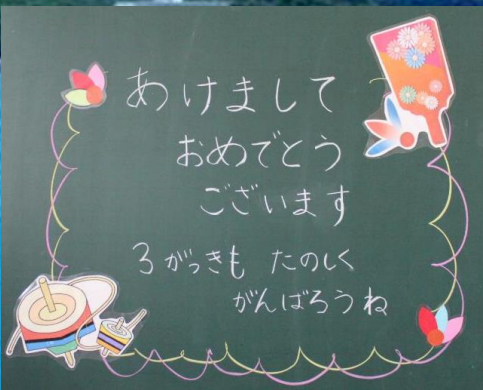 あけまして
おめでとう
ございます
3がっきも たのしく
がんばろうね